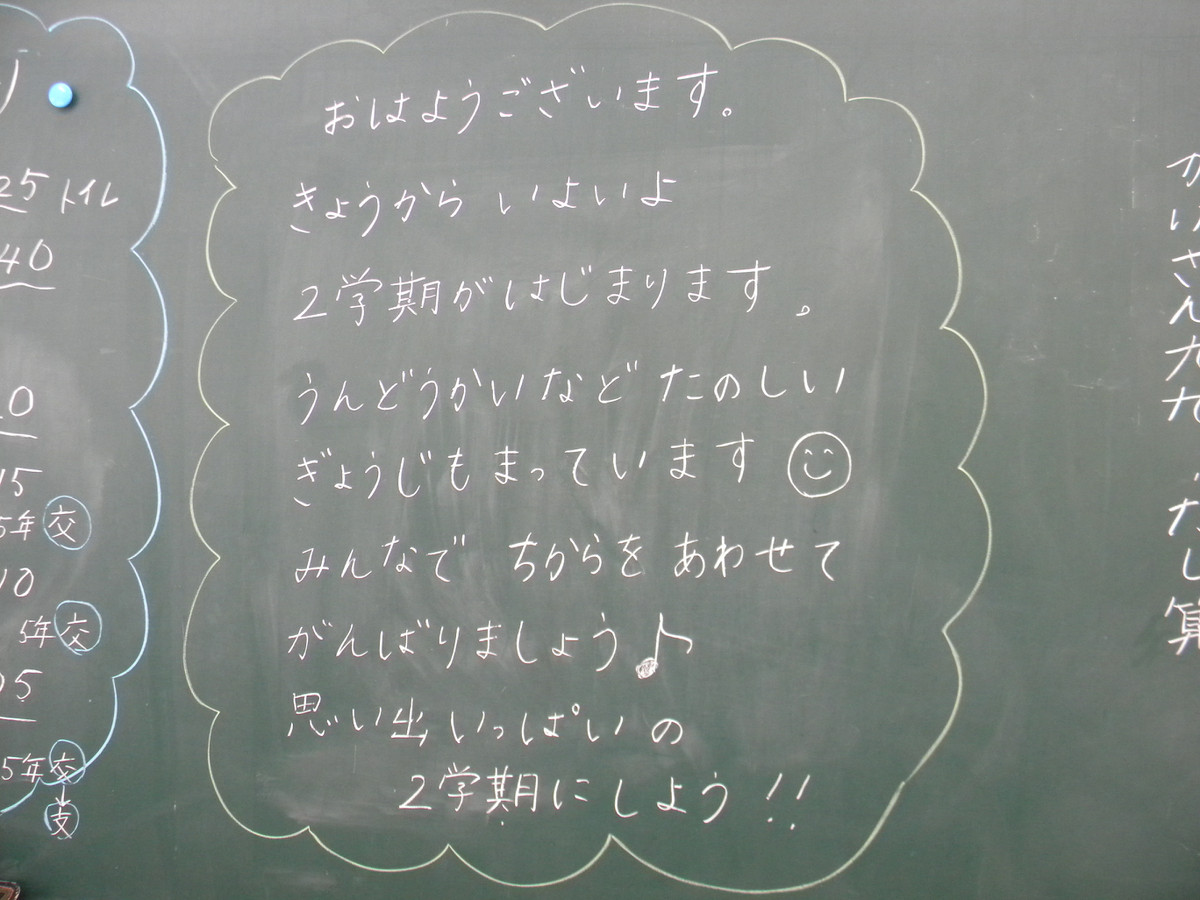 おはようございます。
きょうから いよいよ
2学期がはじまります。
うんどうかいなど たのしい
ぎょうじもまっています
みんなで ちからを あわせて
がんばりましょう♪
思い出いっぱいの
2学期にしよう!!
25 トイレ
40
0
15
5年 交
10
5年 交
5
5年 交
支
かいさん九九
たし算